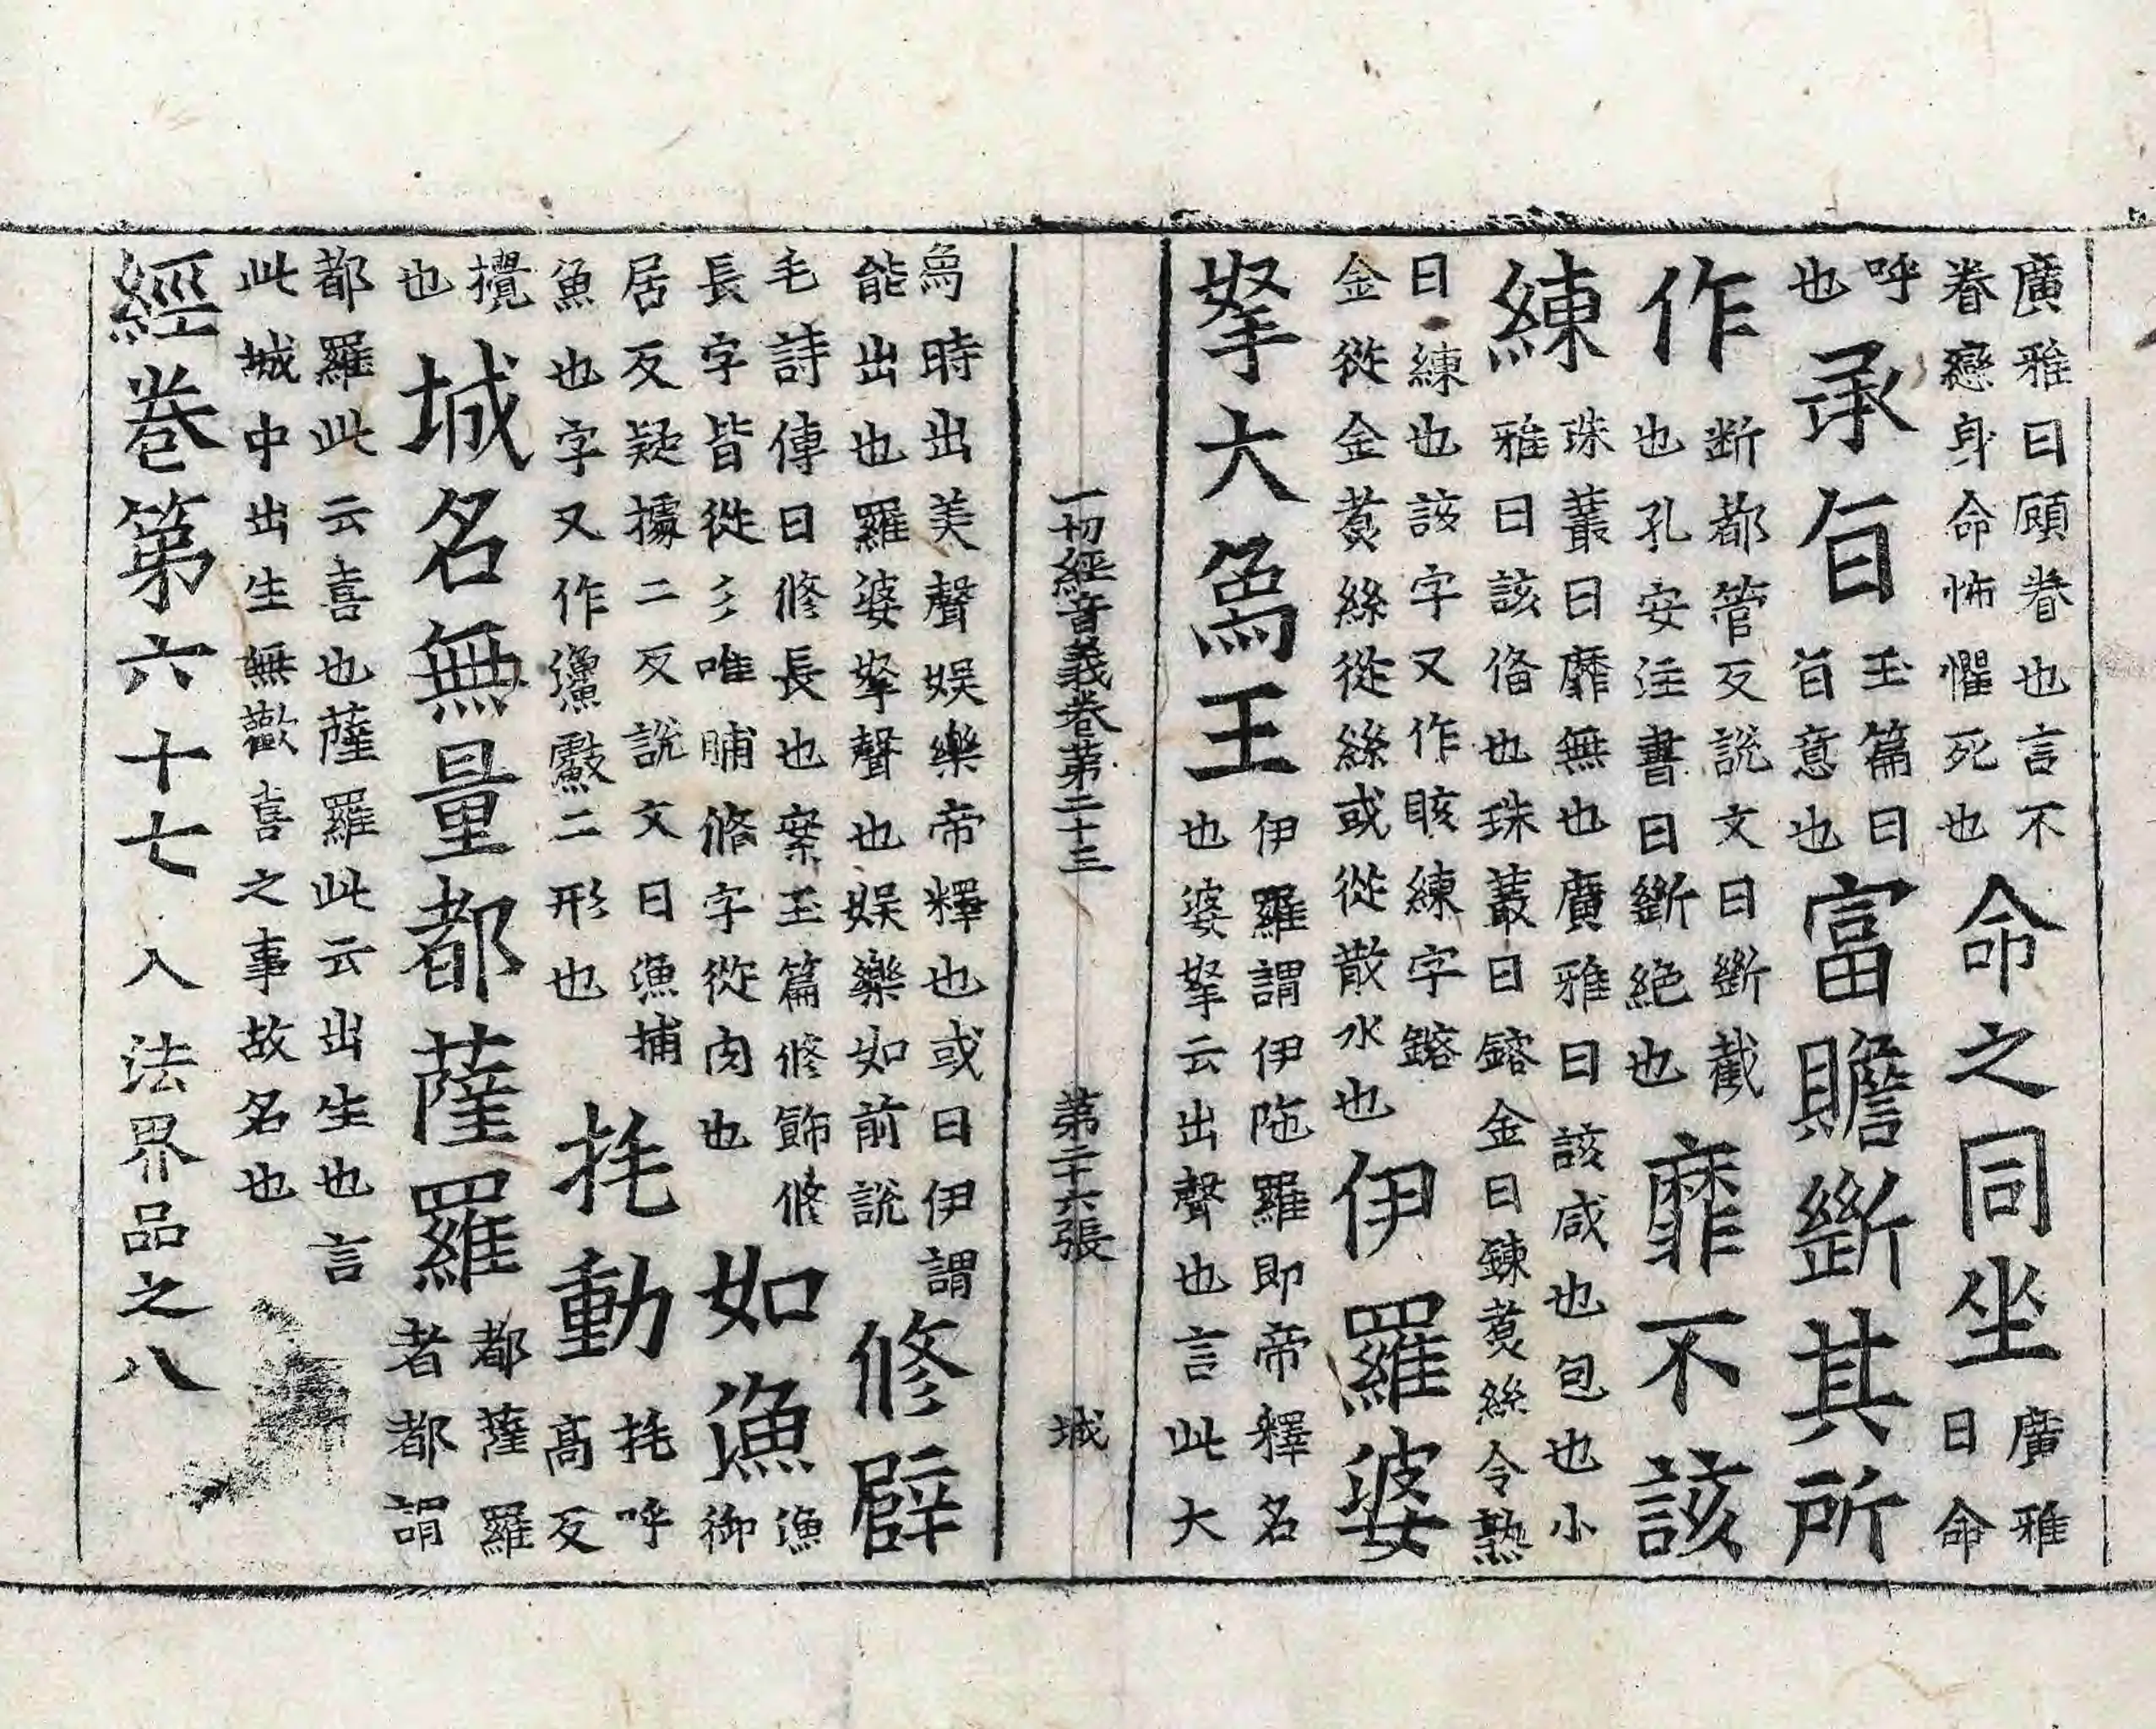 廣雅曰頋眷也言不
眷戀身命怖懼死也
命之同坐
廣雅
曰命
呼
也
承旨
玉篇曰
旨意也
富贍斷其所
作
断都管反說文曰斷截
也孔安注書曰斷絶也
靡不該
練
珠叢曰靡無也廣雅曰該咸也包也小
雅曰該俻也珠叢曰鎔金曰鍊煑絲令熟
曰練也該字又作賅練字鎔
金從金煑絲從絲或從散水也
伊羅婆
拏大爲王
伊羅謂伊陁羅即帝釋名
也婆拏云出聲也言此大
一切經音義卷第二十三　第二十六張　城
爲時出美聲娱樂帝釋也或曰伊謂
能出也羅婆拏聲也娱樂如前說
修臂
毛詩傳曰修長也案玉篇修飾修
長字皆從彡唯脯脩字從肉也
如漁
漁
御
居反疑據二反說文曰漁捕
魚也字又作𤅨䰻二形也
㧌動
㧌呼
高反
攪
也
城名無量都薩羅
都薩羅
者都謂
都羅此云喜也薩羅此云出生也言
此城中出生無歡喜之事故名也
經卷第六十七　入法界品之八